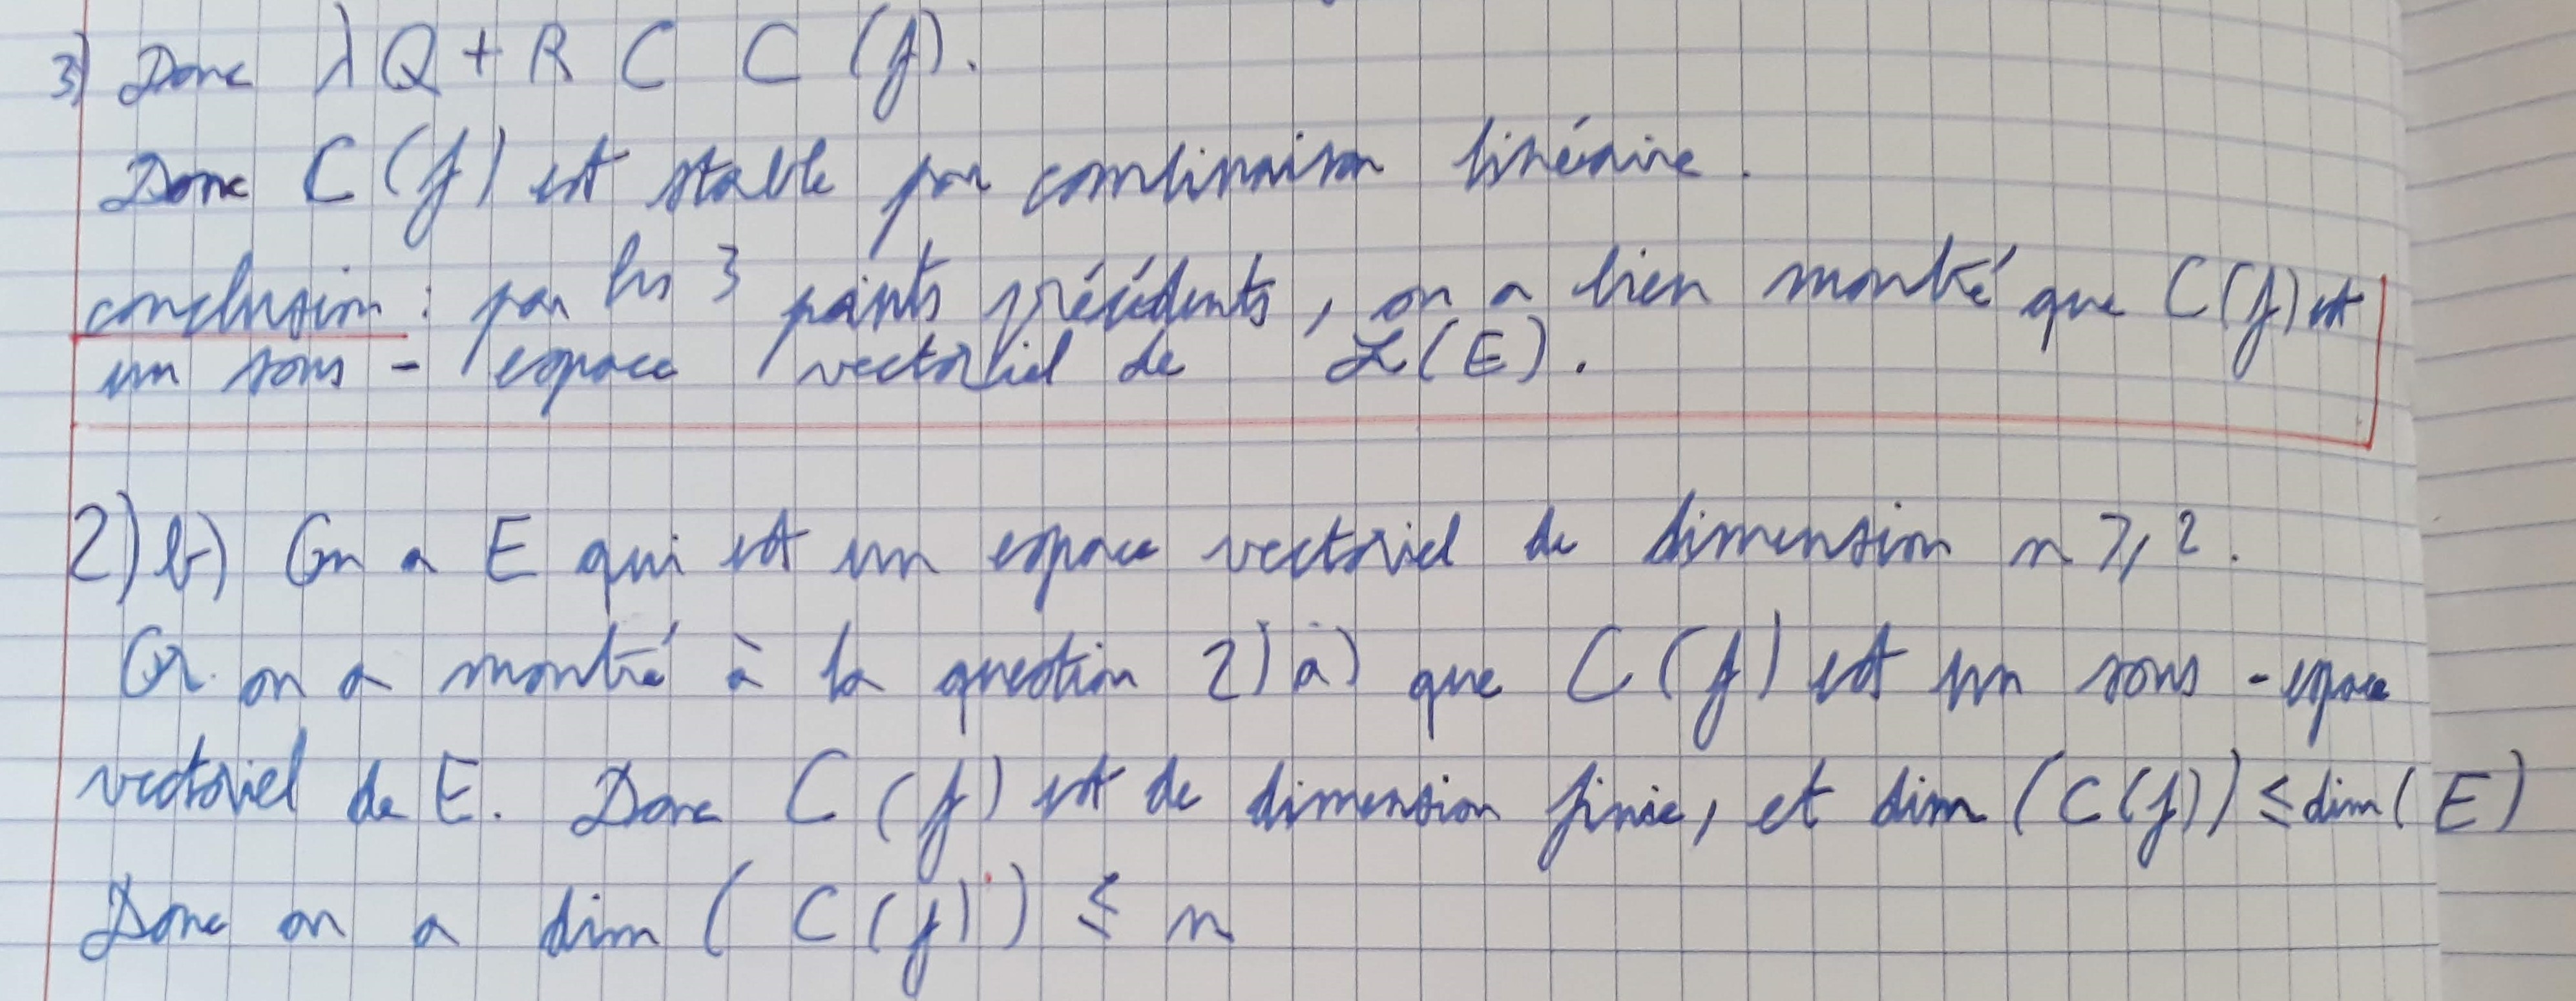 3) Donc λQ + R ⊂ C(f).
Donc C(f) est stable par combinaison linéaire.
conclusion : par les 3 points précédents, on a bien montré que C(f) est
un sous-espace vectoriel de ℒ(E).
2) b) On a E qui est un espace vectoriel de dimension n ⩾ 2.
Or on a montré à la question 2) a) que C(f) est un sous-espace
vectoriel de E. Donc C(f) est de dimension finie, et dim(C(f)) ≤ dim(E)
Donc on a dim(C(f)) ≤ n